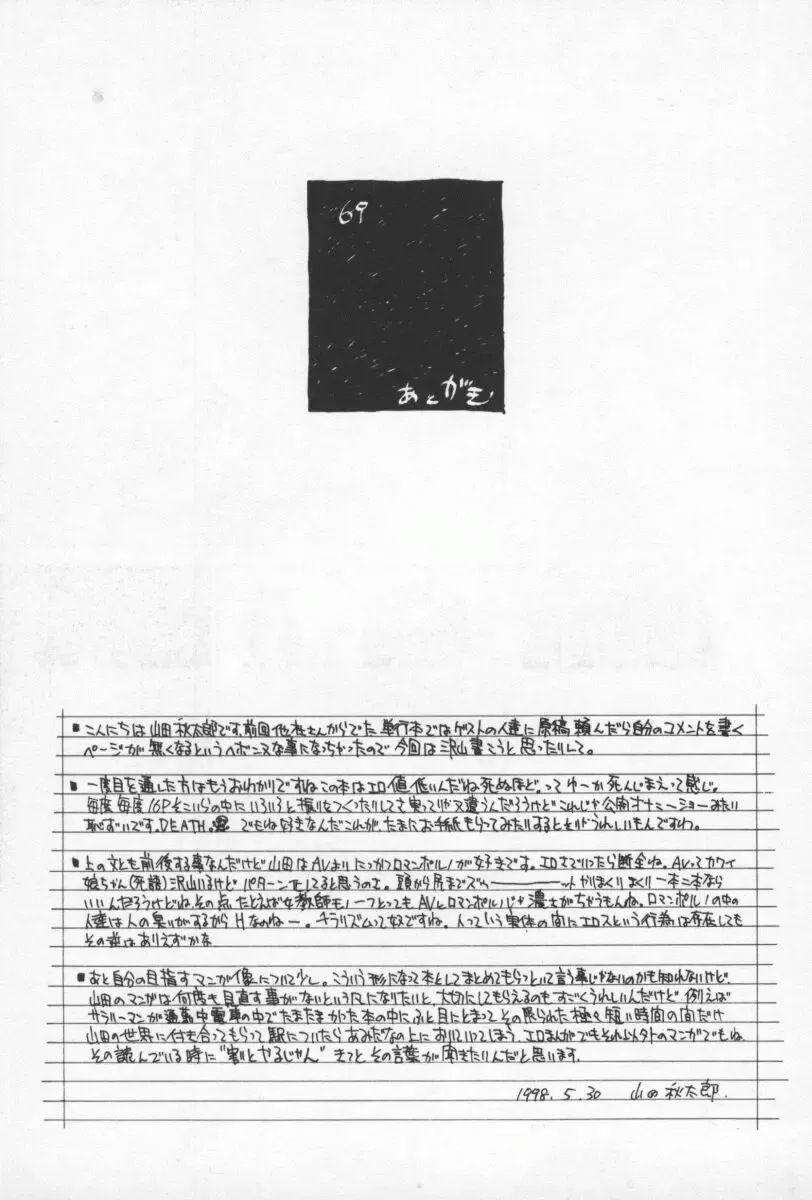 69
あとがき
■こんにちは山田秋太郎です。前回他社さんからでた単行本ではゲストの人達に原稿頼んだら自分のコメントを書く
ページが無くなるというヘボンヌな事になっちゃったので今回は沢山書こうと思ったりして。
■一度目を通した方はもうおわかりですねこの本はエロ値低いんだよね死ぬほど。ってゆーか死んじまえって感じ。
毎度毎度16Pそこいらの中にいろいろと振りをつくったりしてさ実って違うんだろうけどこれじゃ公開オナニーショーみたい
恥ずいです。DEATH。でもね好きなんだこれが。たまにお手紙もらってみたりするとそりゃうれしいもんですわ。
■上の文とも前後する事なんだけど山田はAVよりにっかつロマンポルノが好きです。エロさでいったら断全ね。AVってカワイ
娘ちゃん(死語)沢山いるけどパターン化してると思うのよ。頭から尻までズッーーーーット やりまくりまくり 一本二本なら
いいんだろうけどねその点たとえば女教師モノ一つとってもAVとロマンポルノじゃ濃さがちがうもんね。ロマンポルノの中の
人達は人の臭いがするからHなのねー。チラリズムって奴ですね。人っていう実体の間にエロスという行為は存在しても
その逆はありえずかな
■あと自分の目指すマンガ像について少し。こういう形になって本としてまとめてもらっといて言う事じゃないのかも知れないけど
山田のマンガは何度も見直す事がないという風になりたいと、大切にしてもらえるのもすごくうれしいんだけど例えば
サラリーマンが通勤中電車の中でたまたまかった本の中にふと目にとまってその限られた極々短い時間の間だけ
山田の世界に付き合ってもらって駅についたらあみだなの上においていってしまう。エロまんがでもそれ以外のマンガでもね
その読んでいる時に"割とやるじゃん"きっと その言葉が聞きたいんだと思います。
1998.5.30 山田秋太郎.